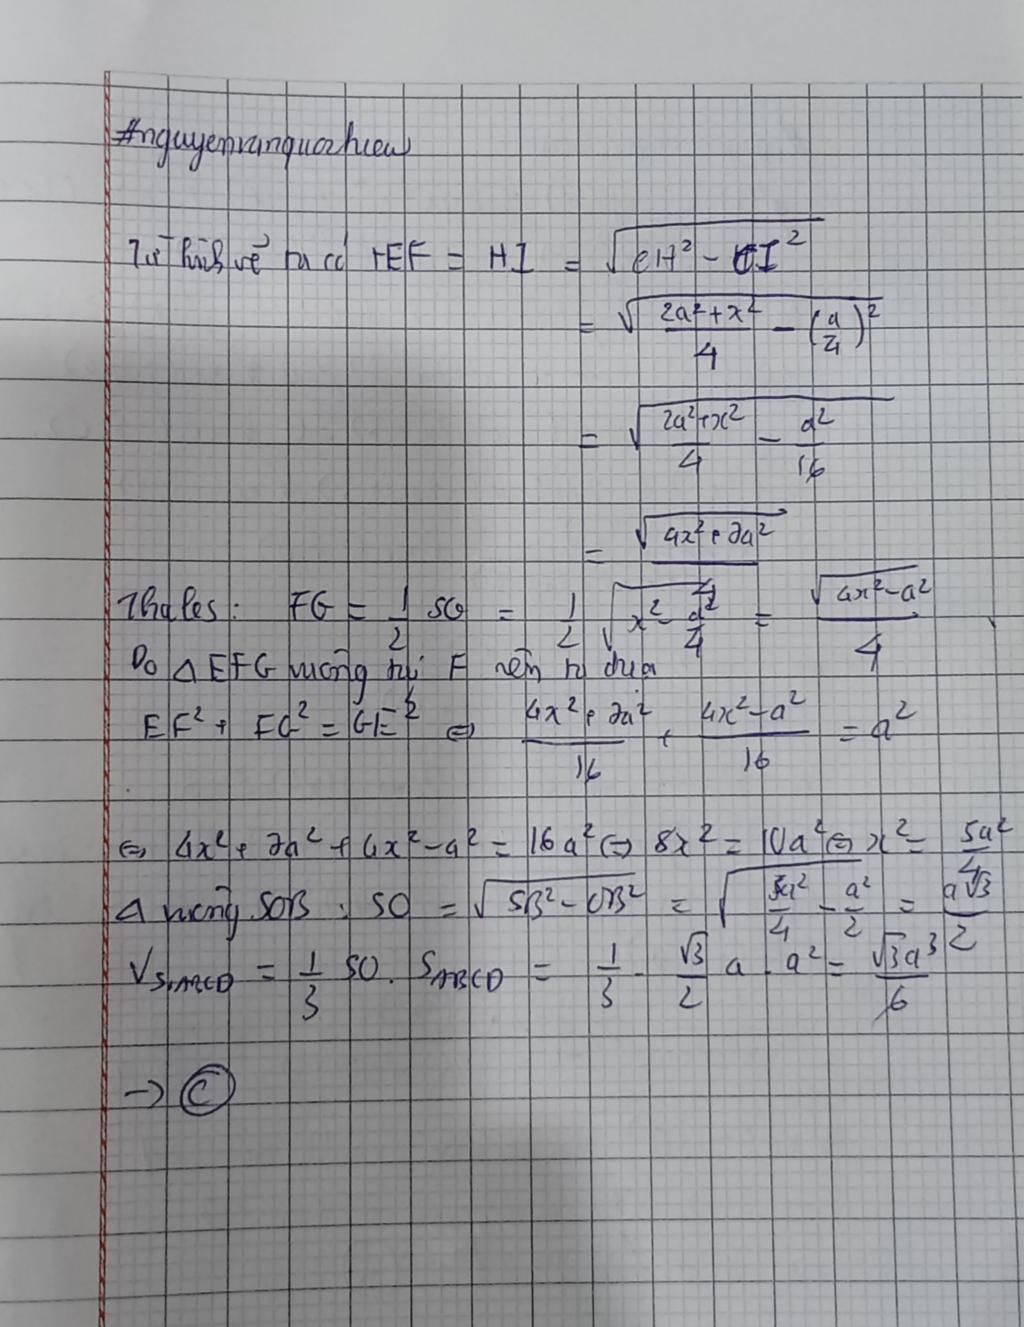 #nguyenvanquochieu
Từ hình vẽ ta có rEF = HI = √(CH² - CI²)
= √((2a²+x²)/4 - (a/4)²)
= √((2a²+x²)/4 - a²/16)
= √(4x²+7a²)/4
Thales: FG = 1/2 SG = 1/2 √(x² - a²/4) = √(4x²-a²)/4
Do △EFG vuông tại F nên ta được
EF² + FG² = GE² ⇔ (4x²+7a²)/16 + (4x²-a²)/16 = a²
⇔ 4x² + 7a² + 4x² - a² = 16a² ⇔ 8x² = 10a² ⇔ x² = 5a²/4
△ vuông SOB : SO = √(SB² - OB²) = √(5a²/4 - a²/2) = a√3/2
V_S.ABCD = 1/3 SO. S_ABCD = 1/3 . √3/2 a . a² = √3a³/6
→ Ⓒ